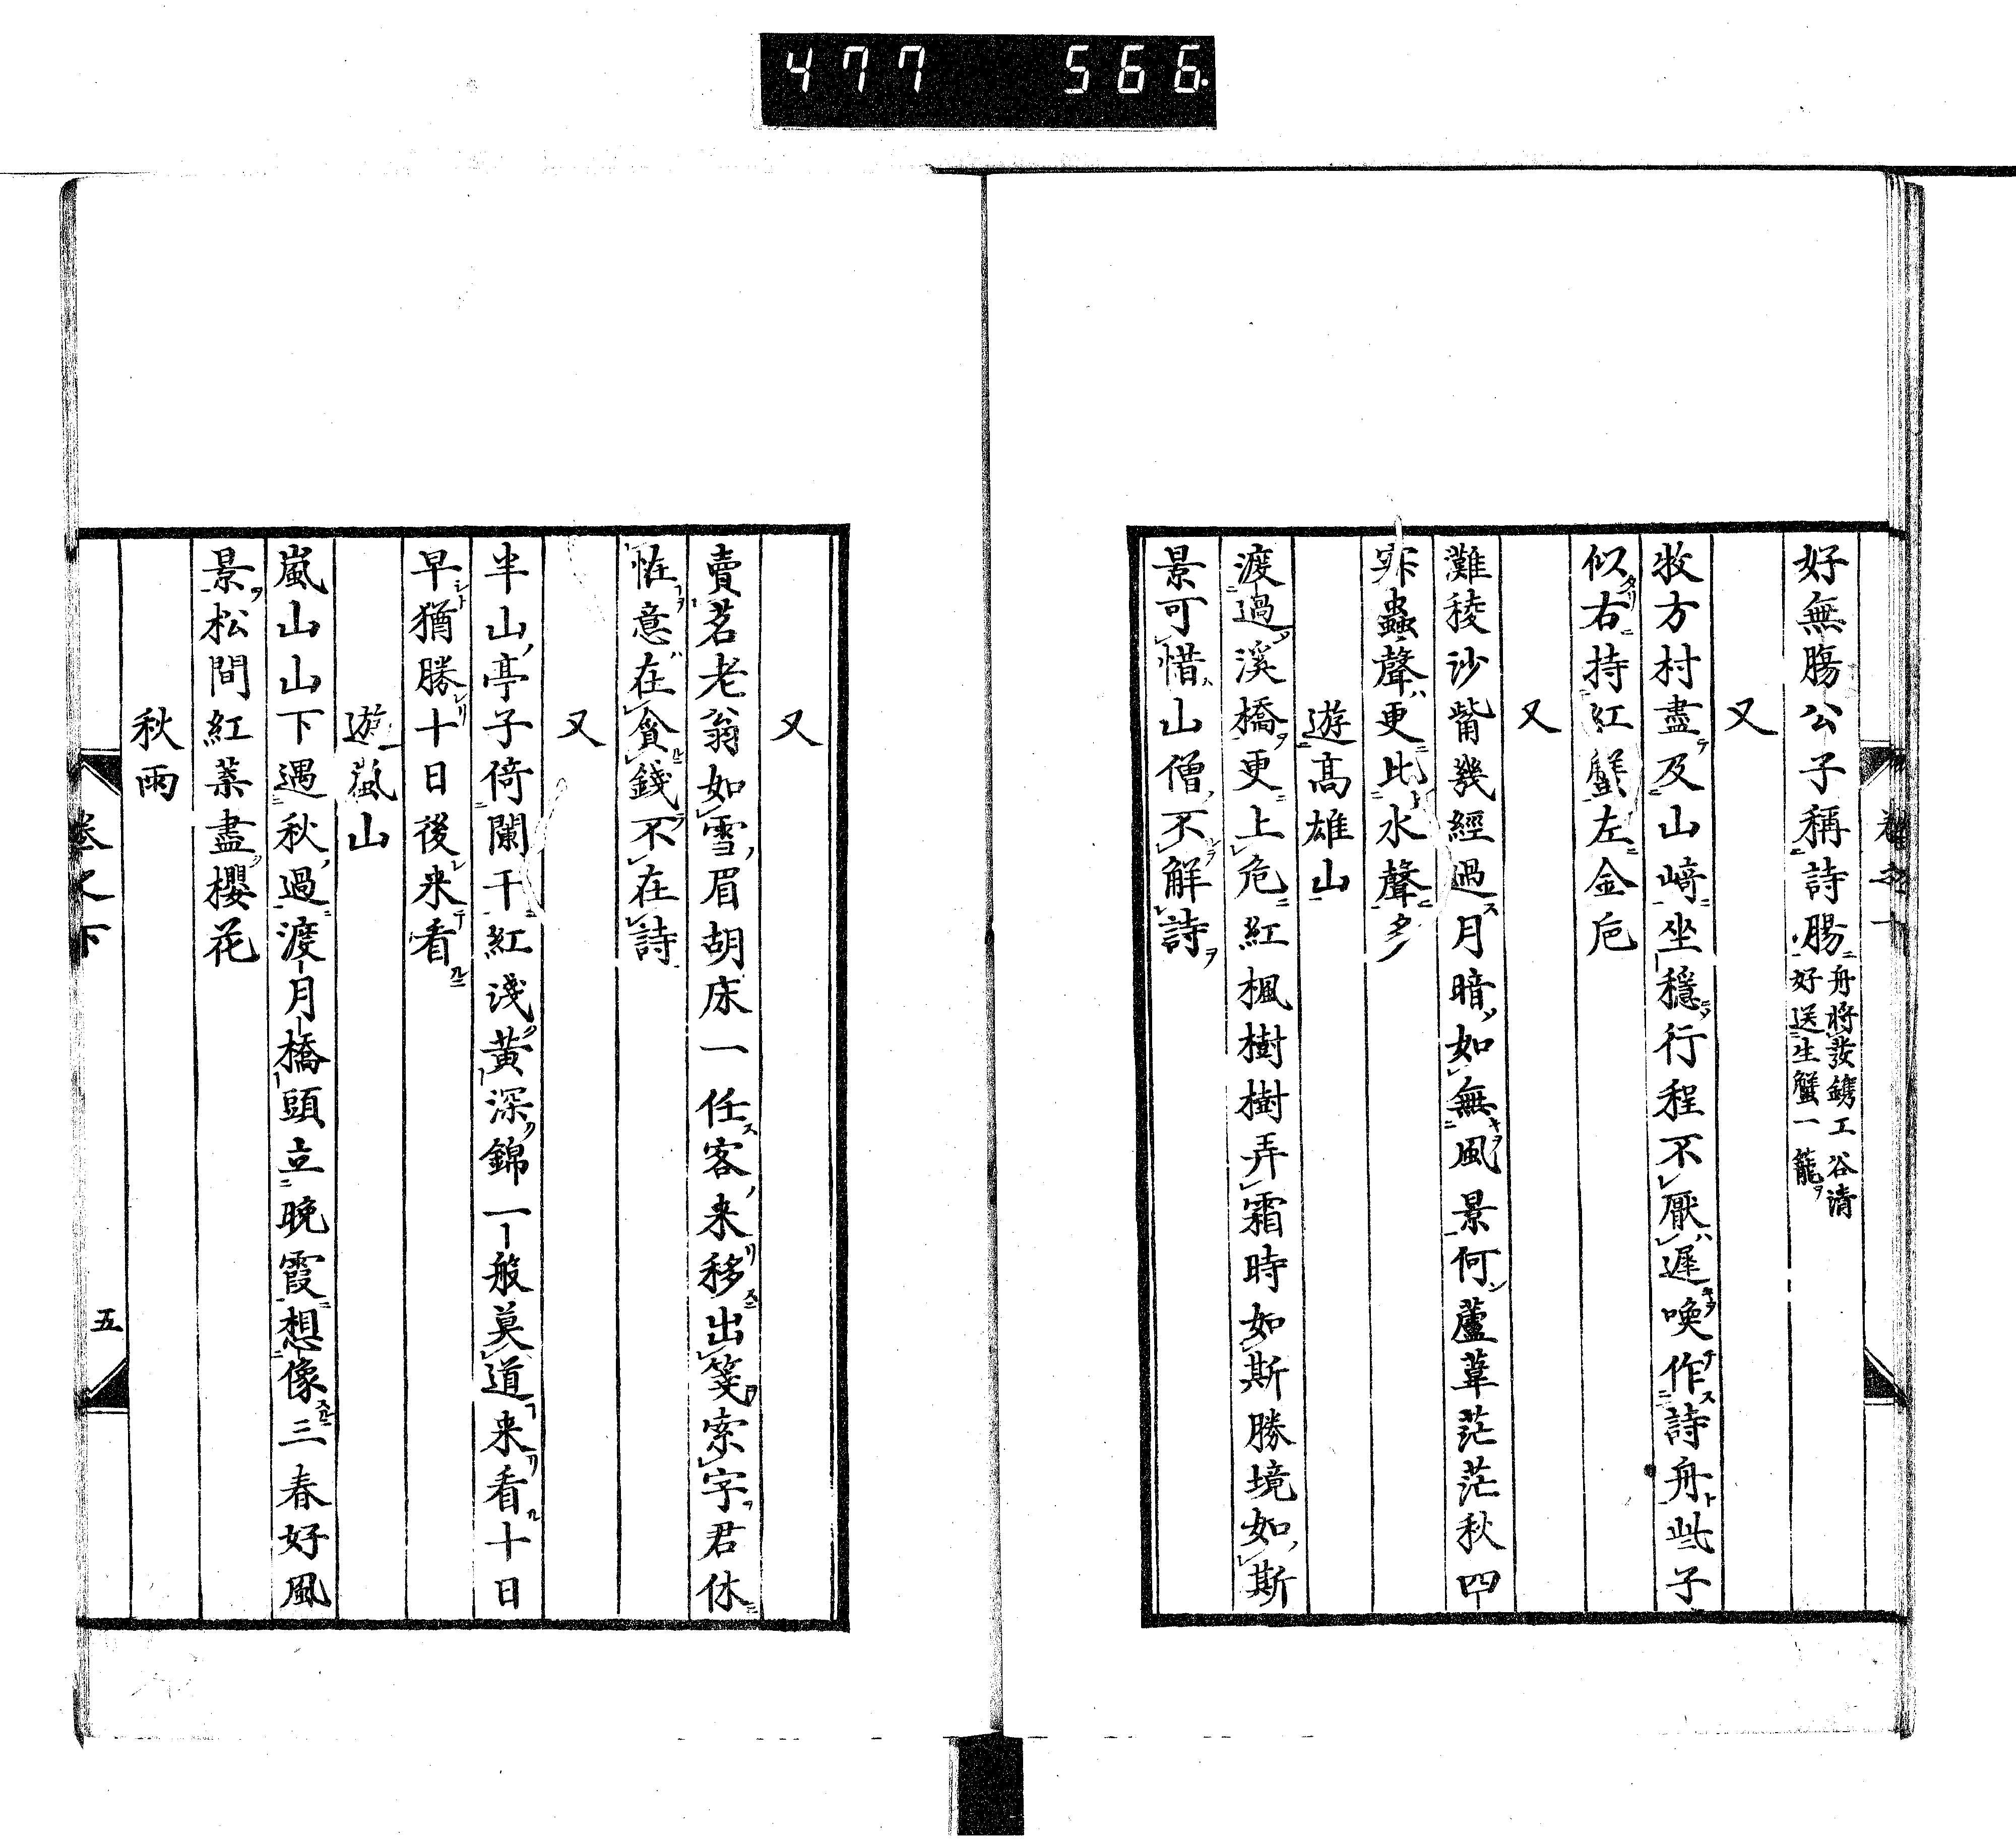 477 566
好無腸公子稱詩腸 舟將發鐫工谷清好送生蟹一籠
又
牧方村盡及山﨑坐穩行程不厭遲喚作詩舟此子
似右持紅蟹左金巵
又
灘稜沙觜幾經過月暗如無風景何蘆葦茫茫秋四
寂蟲聲更比水聲多
遊高雄山
渡過溪橋更上危紅楓樹樹弄霜時如斯勝境如斯
景可惜山僧不解詩
又
賣茗老翁如雪眉胡床一任客来移出箋索字君休
恠意在貪錢不在詩
又
半山亭子倚闌干紅淺黃深錦一般莫道来看十日
早猶勝十日後来看
遊嵐山
嵐山山下遇秋過渡月橋頭立晚霞想像三春好風
景松間紅葉盡櫻花
秋雨
卷之下
五